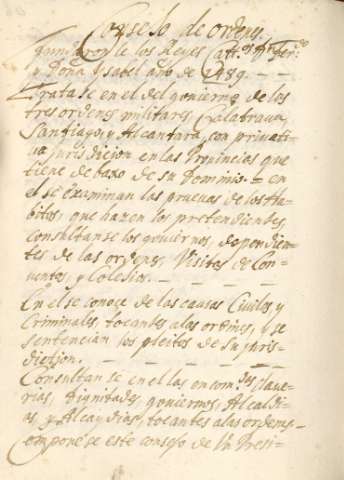 Consejo de ordens.
los Reyes Catt.os Dn Fer.do
y Doña Ysabel año de 1489.
Tratase en el del govierno de los
tres ordens militares Calatrava,
Santiago, y Alcantara, con privati-
va jurisdicion en las Provincias que
tiene debaxo de su Dominio. = en
el se examinan las pruevas de los Ha-
bitos, que hazen los pretendientes,
consultanse los goviernos, dependien-
tes de las ordens, Visitas de Con-
ventos, y Colesios.
En el se conoce de las causas Civiles, y
Criminales, tocantes a las ordines, y se
sentencian los pleitos de su juris-
dictjon.
Consultan se en el las encom.das Clave-
rias, Dignitades, goviernos, Alcaldi-
as, y Alcaydias, tocantes a las ordens.
Compone ce este consejo de Un Presi-